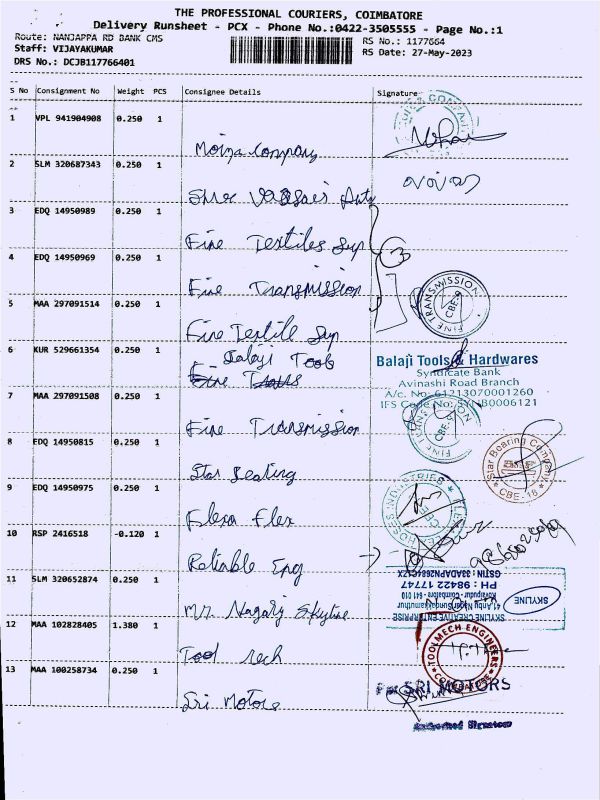 THE PROFESSIONAL COURIERS, COIMBATORE
Delivery Runsheet - PCX - Phone No.:0422-3505555 - Page No.:1
Route: NANJAPPA RD BANK CMS
Staff: VIJAYAKUMAR
DRS No.: DCJB117766401
RS No.: 1177664
RS Date: 27-May-2023
S No Consignment No Weight PCS Consignee Details Signature
1 VPL 941904908 0.250 1
Moiza Company
2 SLM 320687343 0.250 1
Shree
3 EDQ 14950989 0.250 1
Fine Textiles Sup
4 EDQ 14950969 0.250 1
Fine Transmission
FINE TRANSMISSION CBE-9
5 MAA 297091514 0.250 1
Fine Textile Sup
6 KUR 529661354 0.250 1
Balaji Tools
Balaji Tools & Hardwares
Syndicate Bank
Avinashi Road Branch
A/c. No: 61213070001260
IFS Code No: SYNB0006121
7 MAA 297091508 0.250 1
Fine Transmission
FINE TRANSMISSION CBE-9
8 EDQ 14950815 0.250 1
Star Beating
Star Bearing Company CBE-18
9 EDQ 14950975 0.250 1
Flexa Flex
10 RSP 2416518 -0.120 1
Reliable Eng
11 SLM 320652874 0.250 1
Mr. Nagaraj Skyline
SKYLINE CREATIVE ENTERPRISE
PH : 98422 17747
SKYLINE
12 MAA 102828405 1.380 1
Tool Tech
TOOLMECH ENGINEERS COIMBATORE
13 MAA 100258734 0.250 1
Sri Motors
For SRI MOTORS
Authorised Signatory